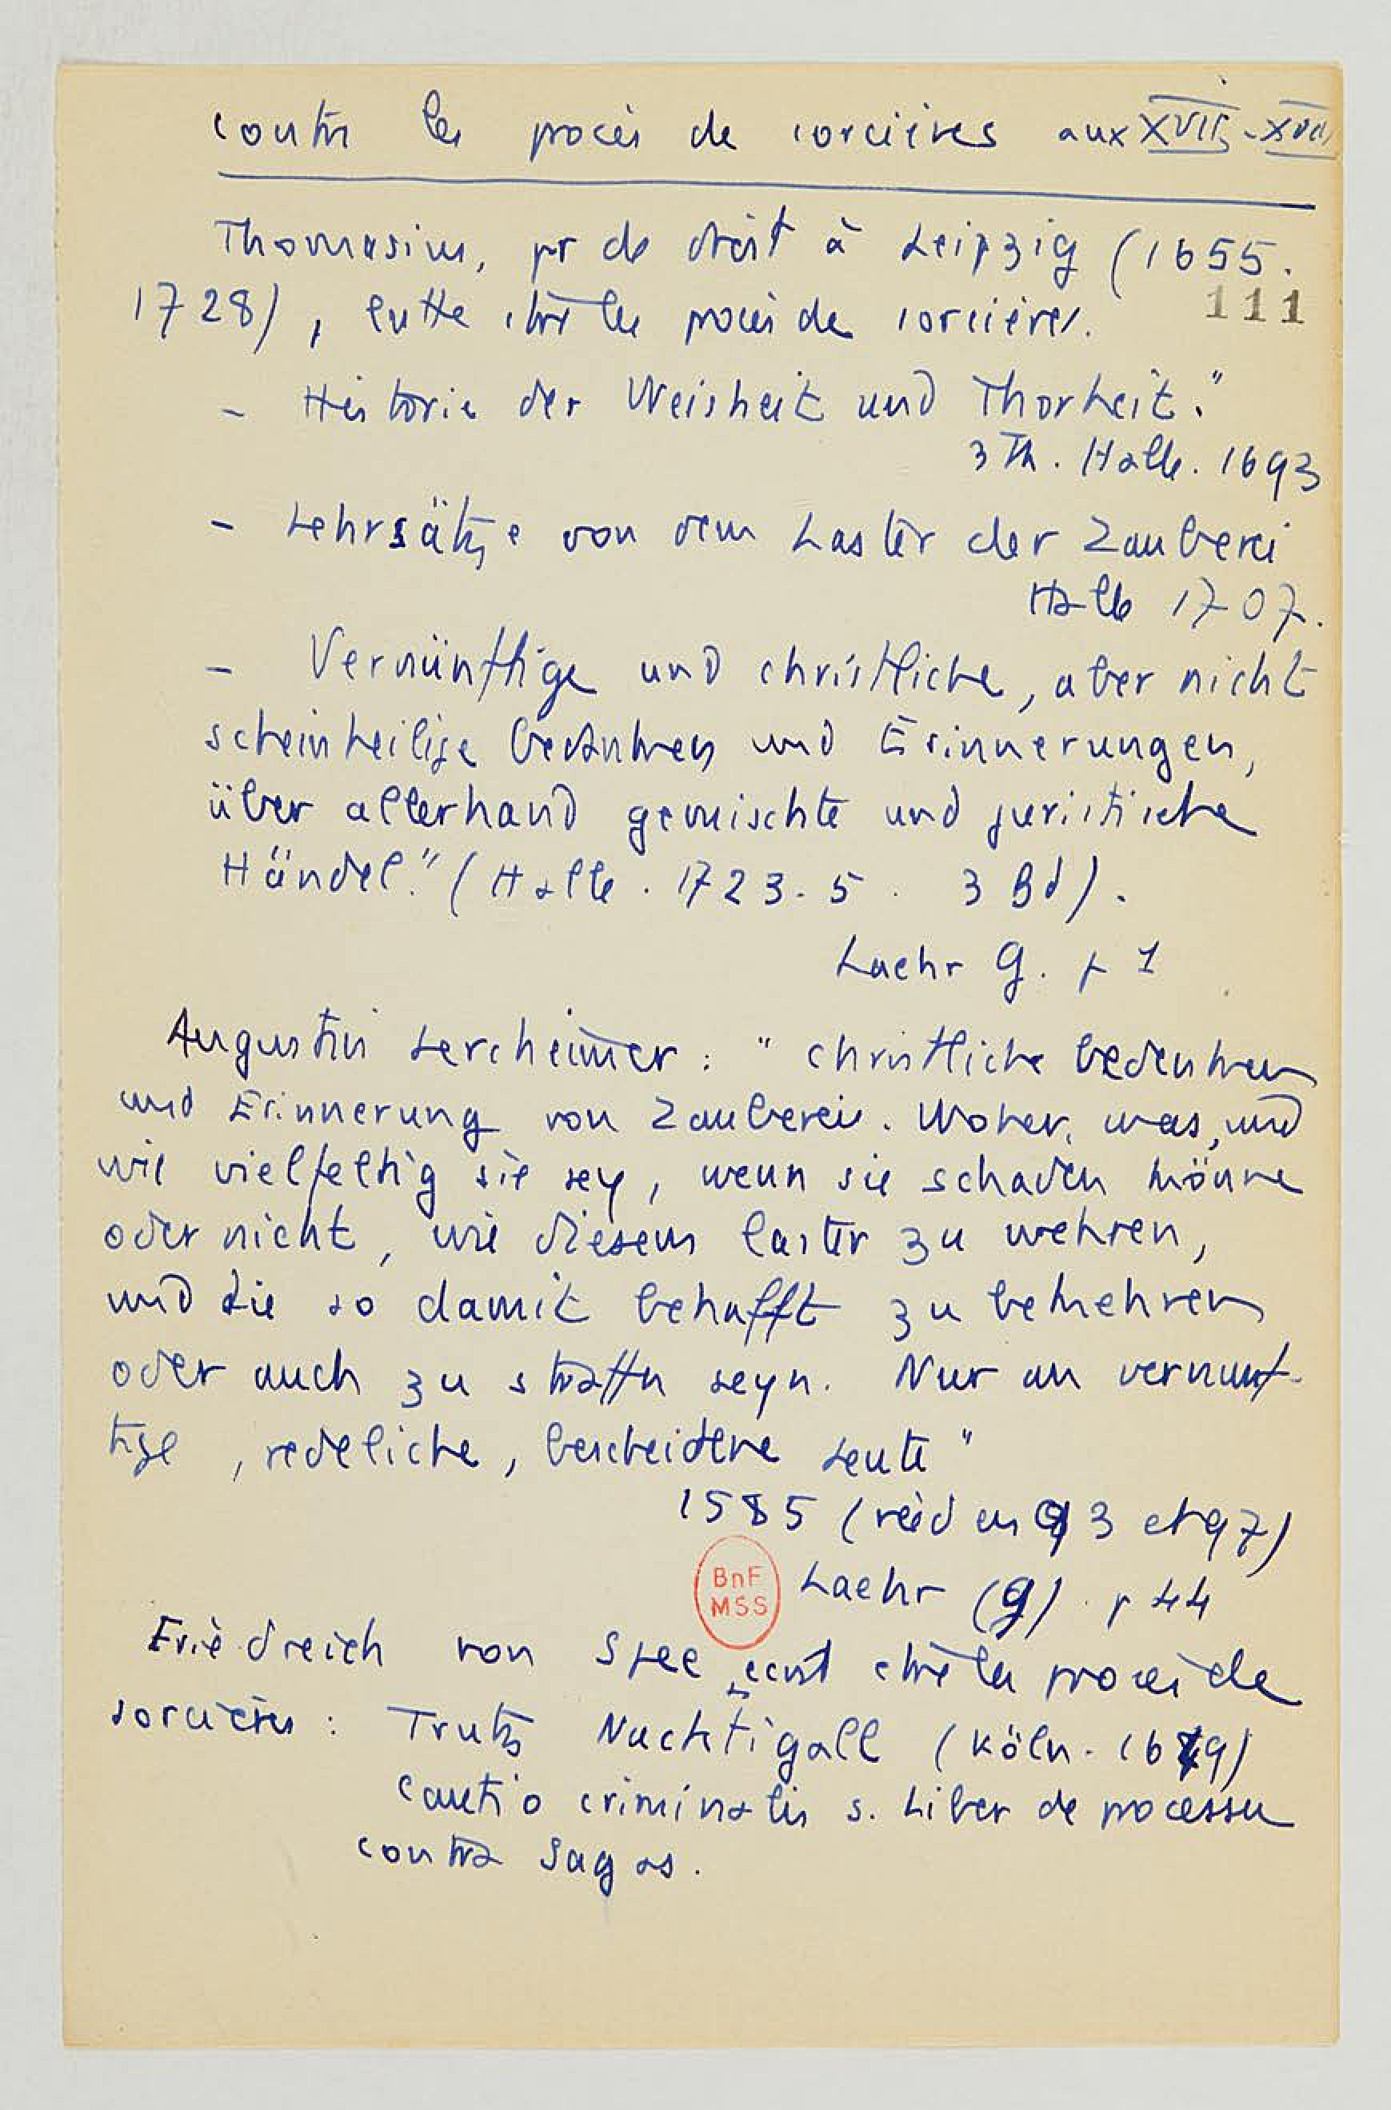 contre les procès de sorcières aux XVII-XVIII
Thomasius, pr de droit à Leipzig (1655.
1728), lutte ctre les procès de sorcières.
111
- Historie der Weisheit und Thorheit."
3 Th. Halle. 1693
- Lehrsätze von dem Laster der Zauberei
Halle 1707.
- Vernünfftige und christliche, aber nicht
scheinheilige bedenken und Erinnerungen,
über allerhand gemischte und juristische
Händel." (Halle. 1723-5. 3 Bd).
Laehr G. p 1
Augustin Lercheimer : " christliche bedenken
und Erinnerung von Zauberei. Woher, was, und
wie vielfeltig sie sey, wenn sie schaden könne
oder nicht, wie diesem laster zu wehren,
und die so damit behafft zu bekehren
oder auch zu straffn seyn. Nur an vernunf-
tige, redeliche, bescheidene Leute"
1585 (rééd en 93 et 97)
BnF
MSS
Laehr (G) p 44
Friedreich von Spee écrit ctre les procès de
sorcières : Trutz Nachtigall (Köln. 1649)
Cautio criminalis s. Liber de processu
contra Sagas.